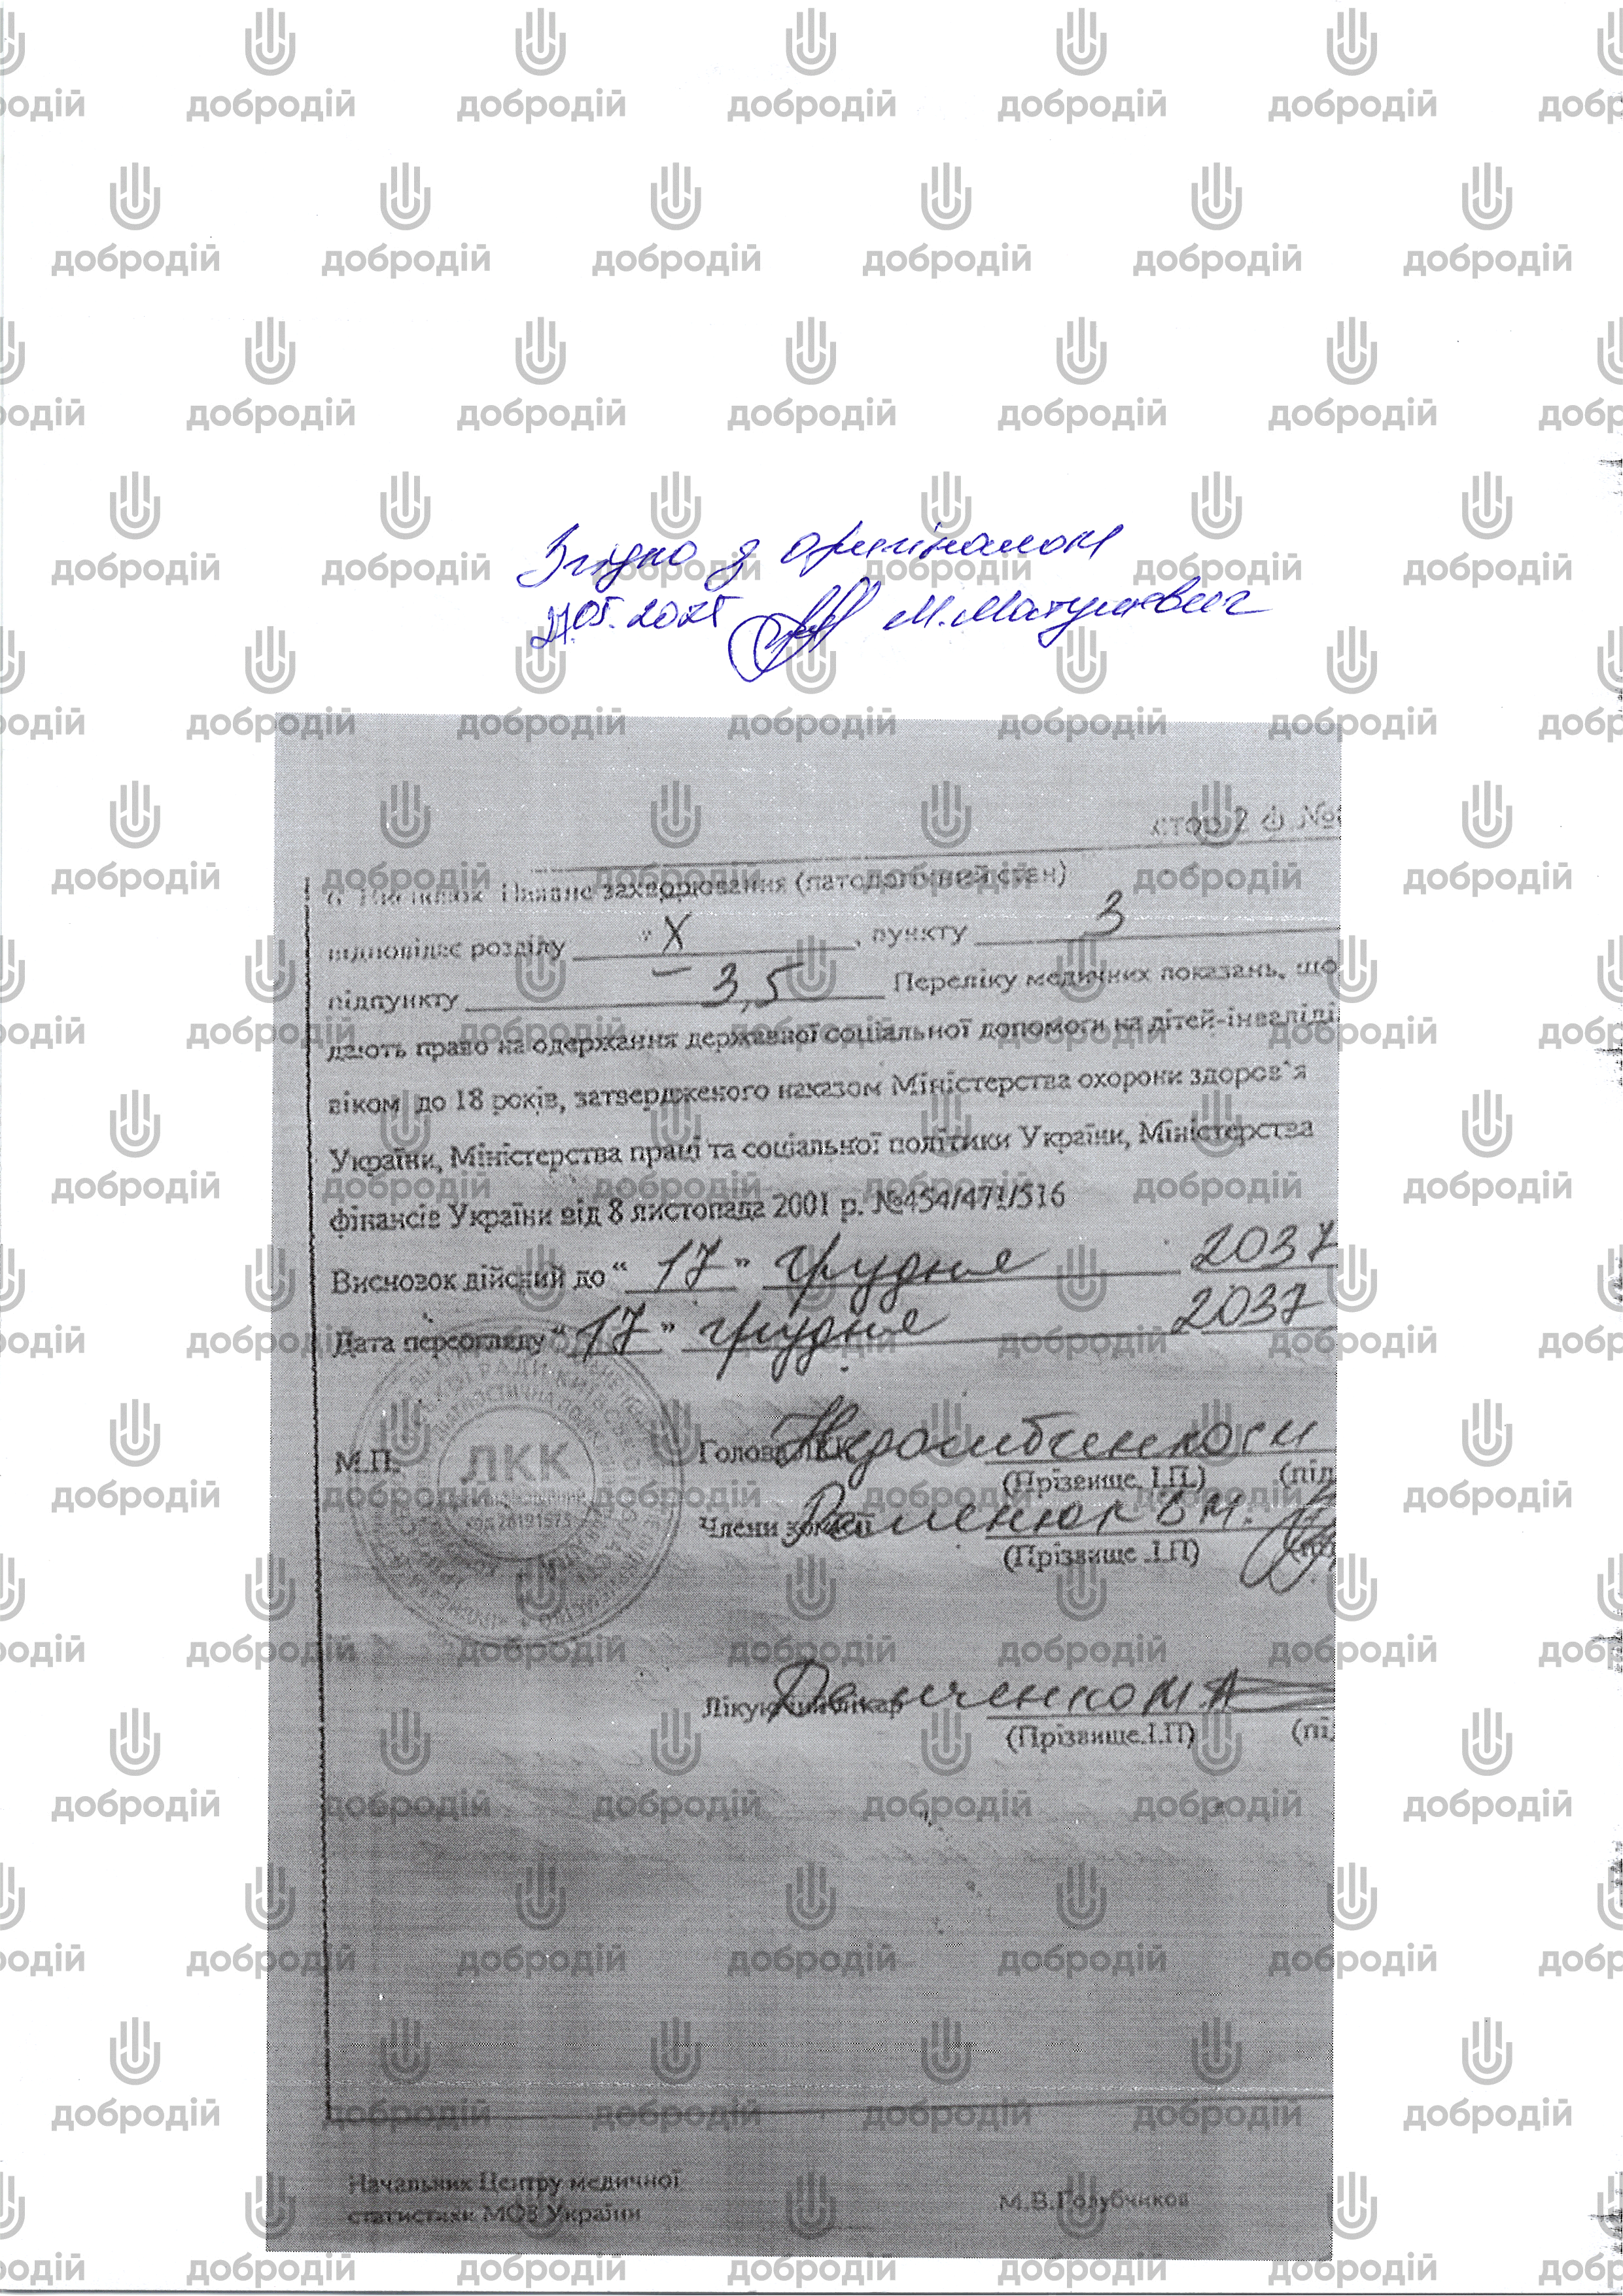 Згідно з оригіналом
27.05.2025 М. Матушевич
стор 2 ф №
6. Висновок Наявне захворювання (патологічний стан)
відповідає розділу X, пункту 3
підпункту – 3,5 Переліку медичних показань, що
дають право на одержання державної соціальної допомоги на дітей-інваліді
віком до 18 років, затвердженого наказом Міністерства охорони здоров`я
України, Міністерства праці та соціальної політики України, Міністерства
фінансів України від 8 листопада 2001 р. №454/471/516
Висновок дійсний до “ 17 ” грудня 2037
Дата переогляду “ 17 ” грудня 2037
М.П.
ЛКК
Голова ЛКК
(Прізвище, І.П.) (під
Члени комісії В М.
(Прізвище .І.П) (під
Лікуючий лікар М.А
(Прізвище.І.П) (пі
Начальник Центру медичної
статистики МОЗ України М.В.Голубчиков
добродій